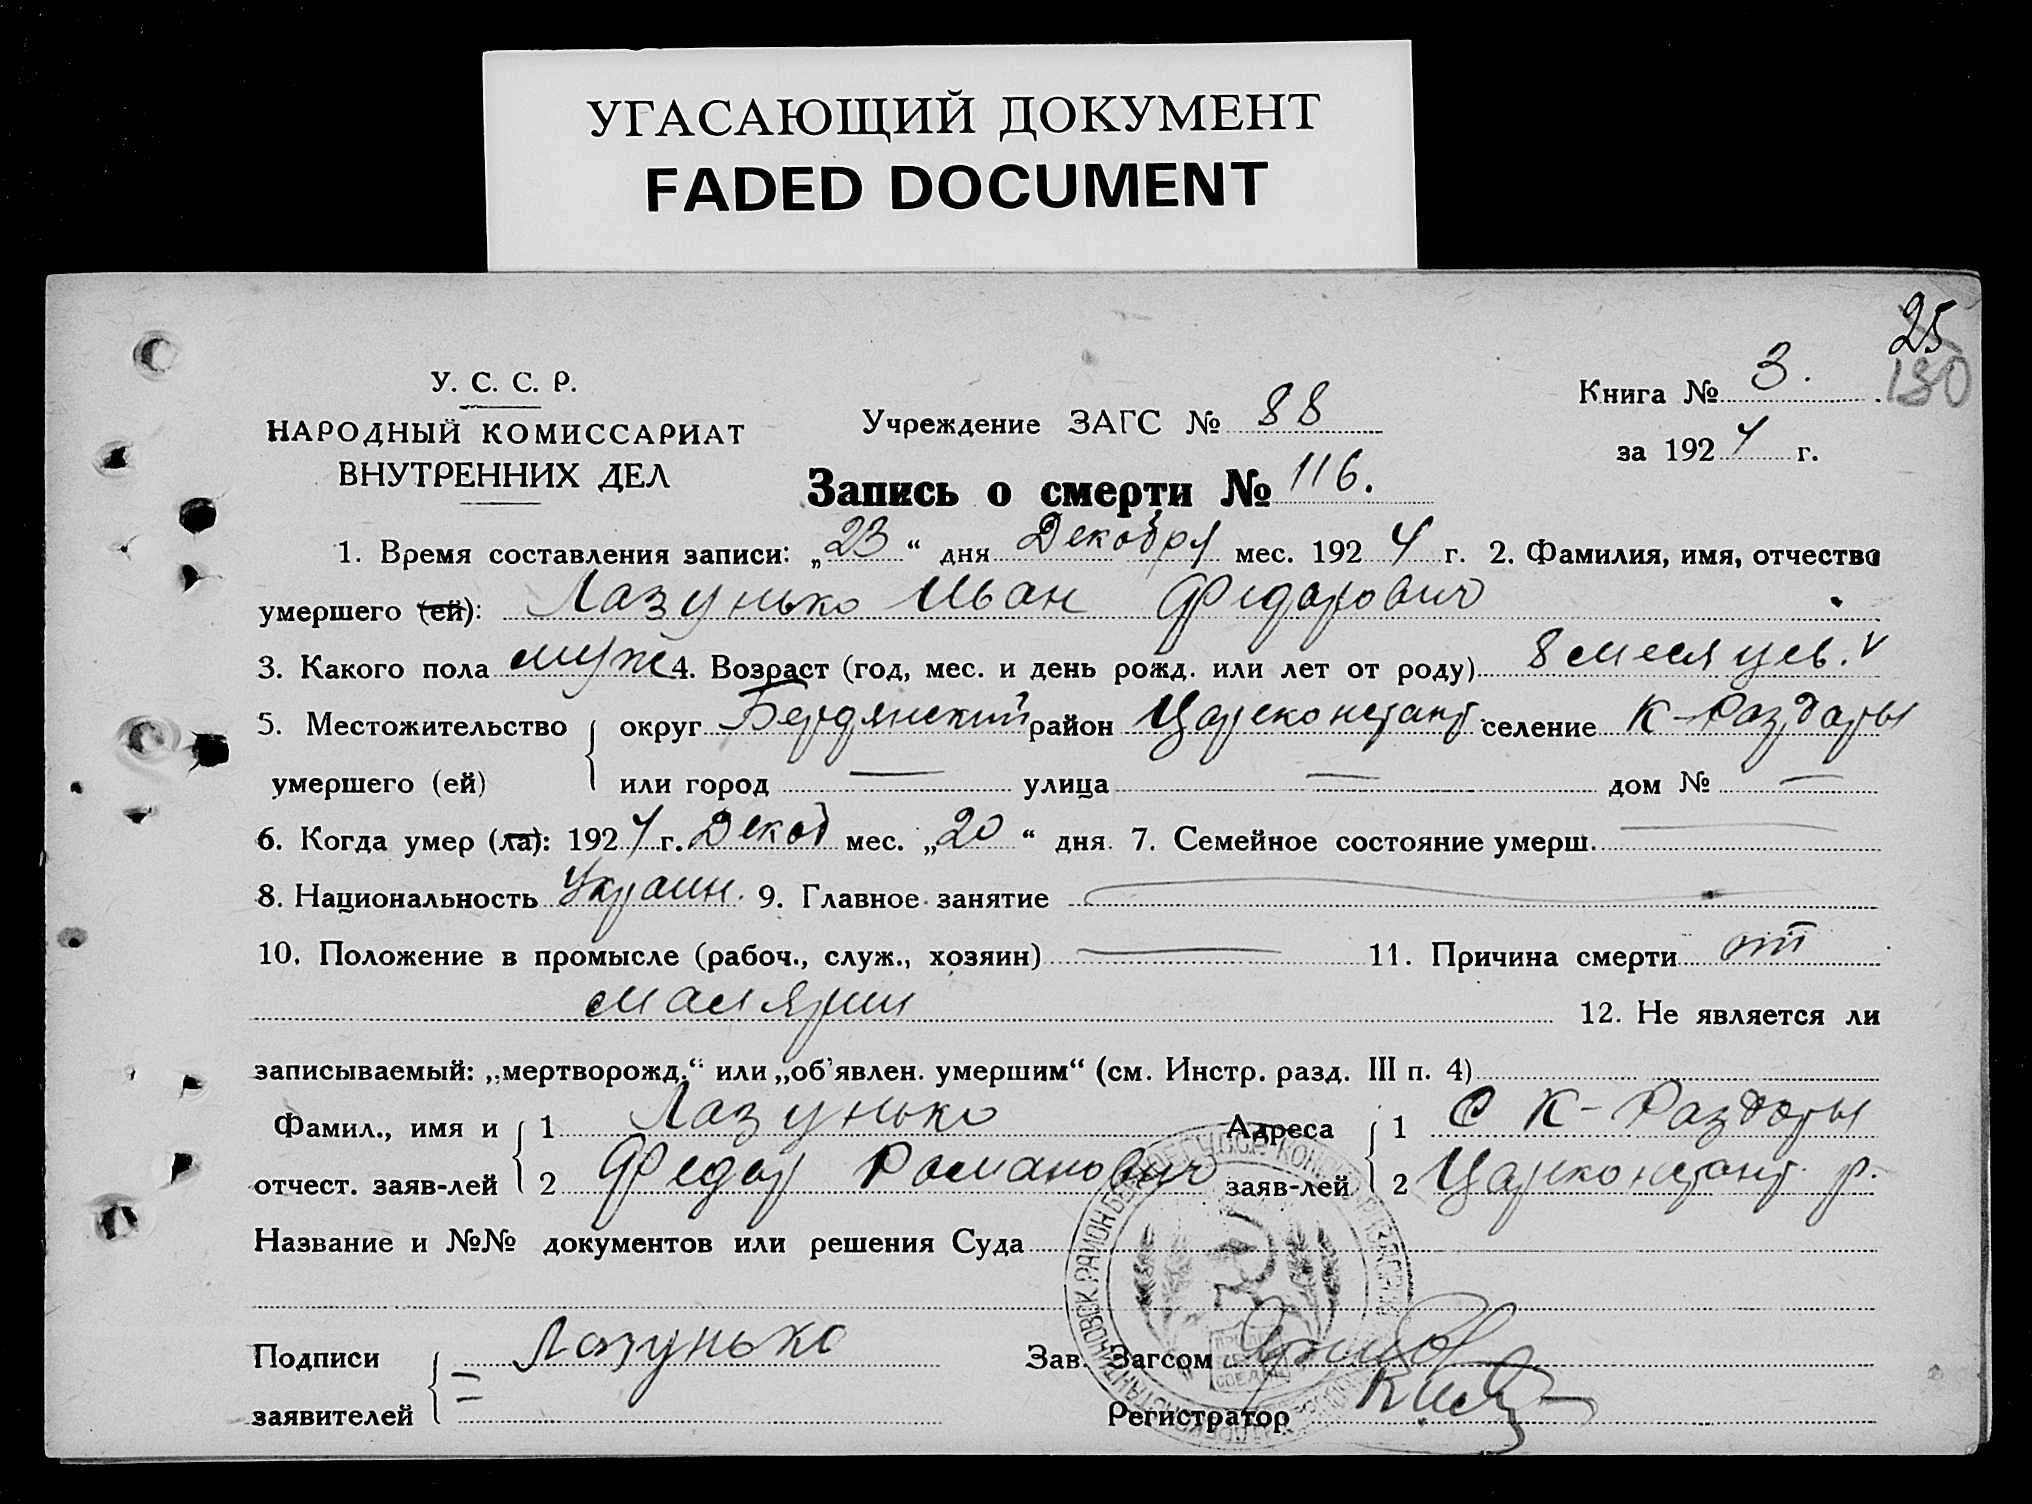 УГАСАЮЩИЙ ДОКУМЕНТ
FADED DOCUMENT
25
130
У. С. С. Р.
НАРОДНЫЙ КОМИССАРИАТ
ВНУТРЕННИХ ДЕЛ
Учреждение ЗАГС № 88
Книга № 3.
за 1924 г.
Запись о смерти № 116.
1. Время составления записи: „23“ дня Декабря мес. 1924 г. 2. Фамилия, имя, отчество
умершего (ей): Лазунько Иван Федорович
3. Какого пола муж 4. Возраст (год, мес. и день рожд. или лет от роду) 8 месяцев. v
5. Местожительство округ Бердянский район Цареконстант. селение К-Раздоры
умершего (ей) или город — улица — дом № —
6. Когда умер (ла): 1924 г. Декаб мес. „20“ дня. 7. Семейное состояние умерш. —
8. Национальность Украин. 9. Главное занятие —
10. Положение в промысле (рабоч., служ., хозяин) — 11. Причина смерти от
малярии 12. Не является ли
записываемый: „мертворожд.“ или „об'явлен. умершим“ (см. Инстр. разд. III п. 4)
Фамил., имя и 1 Лазунько Адреса 1 С К-Раздоры
отчест. заяв-лей 2 Федор Романович заяв-лей 2 Цареконстант. р.
Название и №№ документов или решения Суда
Подписи Лазунько Зав. Загсом
заявителей Регистратор